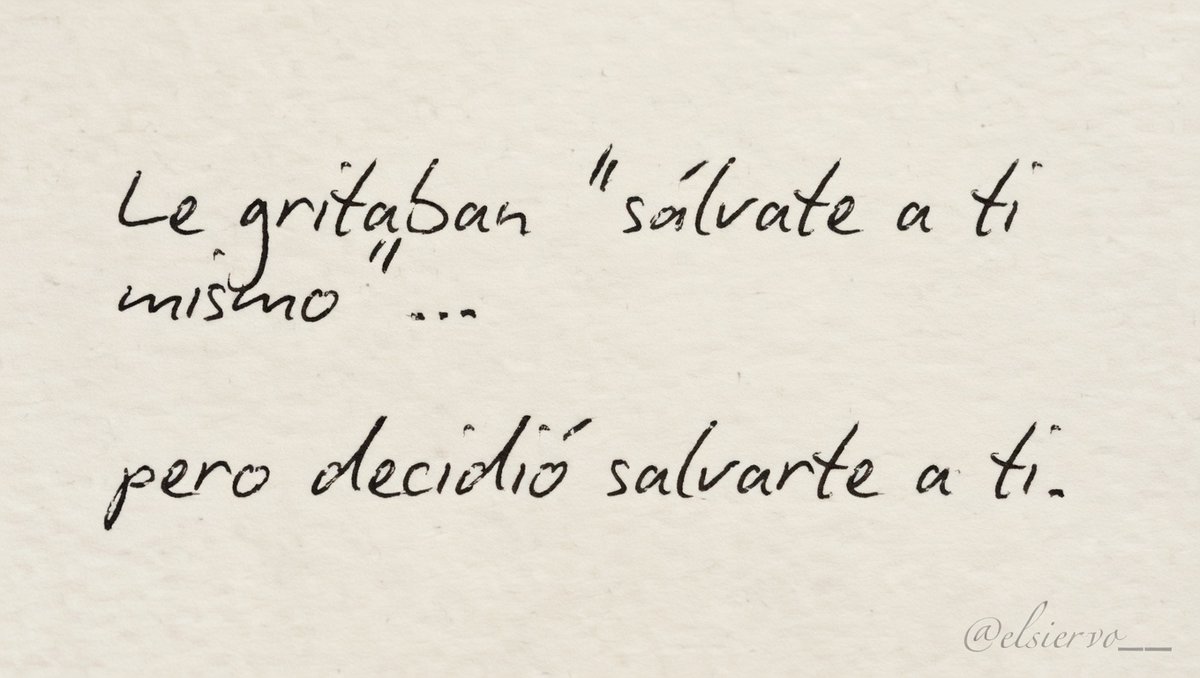 Le gritaban "sálvate a ti
mismo"...
pero decidió salvarte a ti.
@elsiervo__